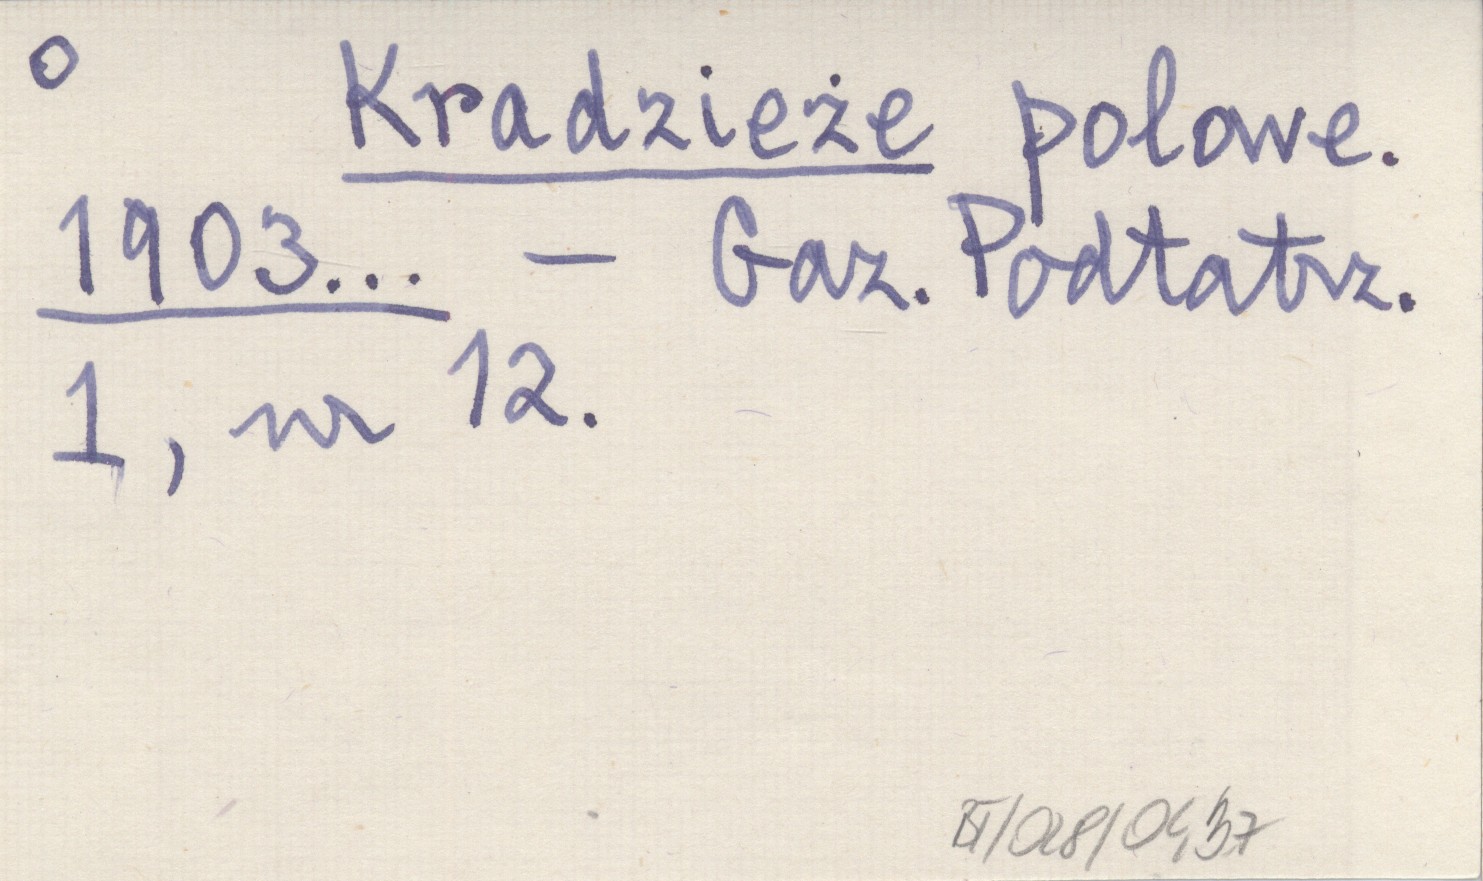 o Kradzieże polowe.
1903... – Gaz. Podtatrz.
1, nr 12.